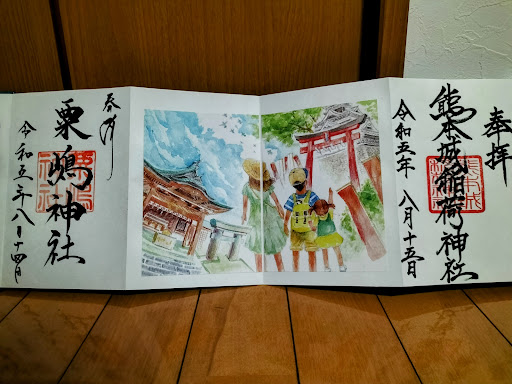 奉拝
熊本城稲荷神社
令和五年 八月十五日
奉拝
粟嶋神社
令和五年八月十四日